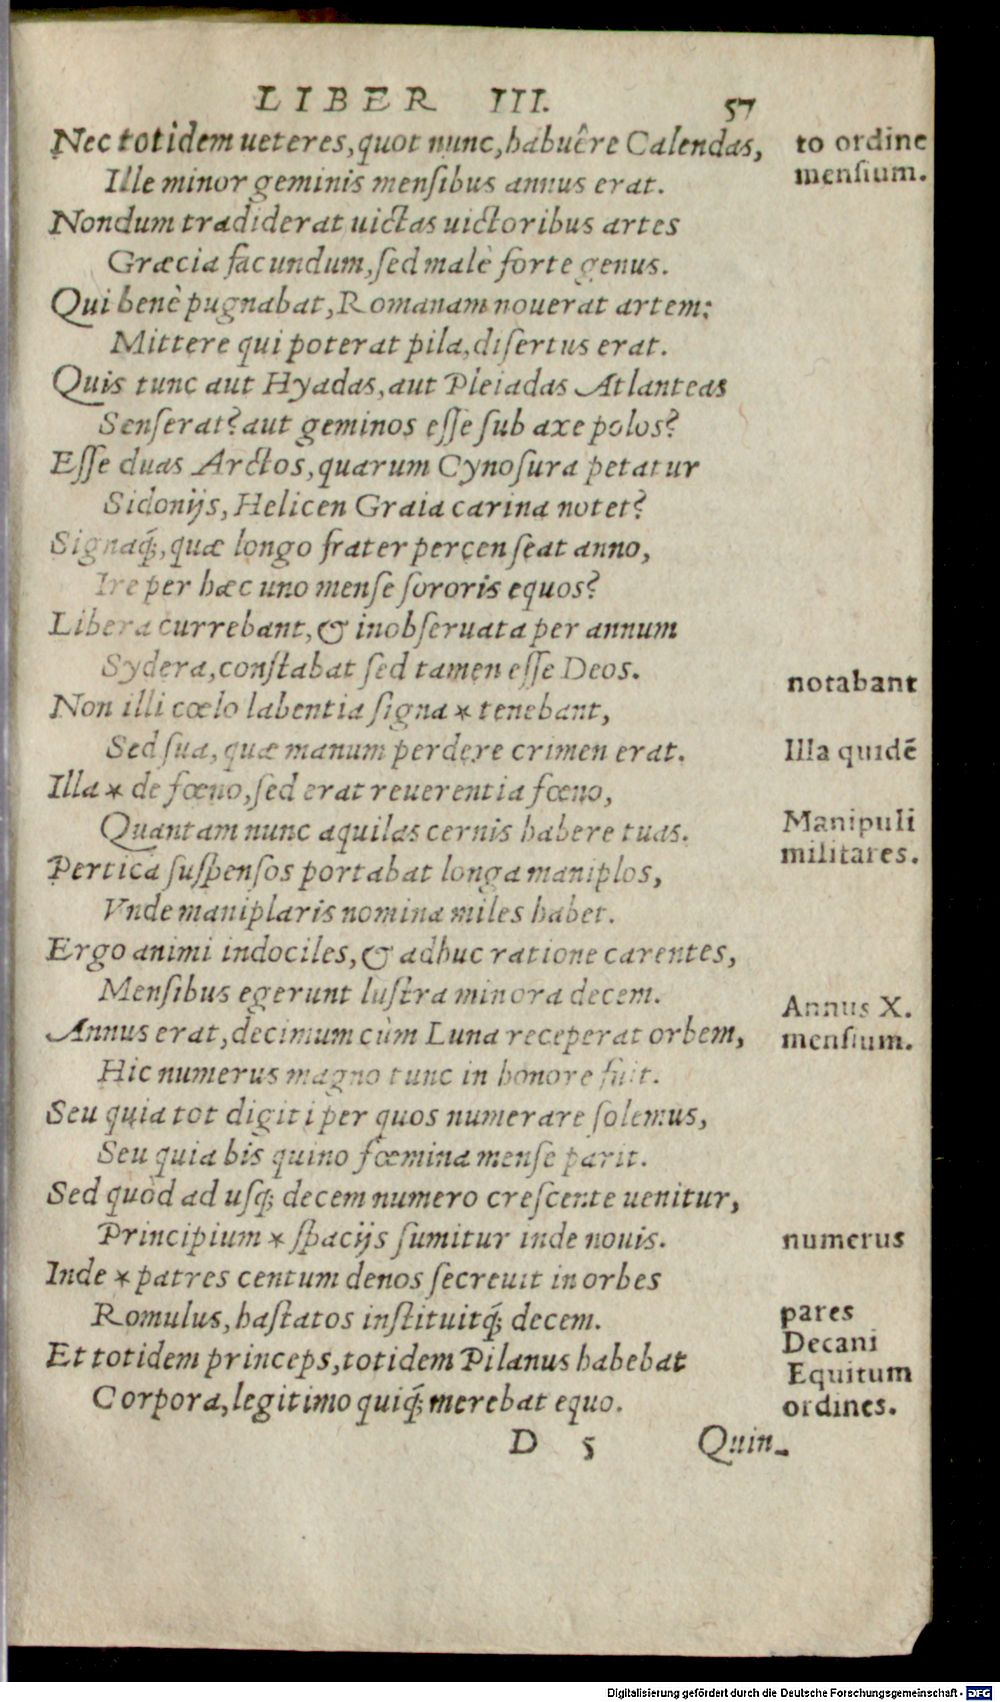 LIBER III. 57
Nec totidem ueteres, quot nunc, habuêre Calendas, to ordine
Ille minor geminis mensibus annus erat. mensium.
Nondum tradiderat uictas uictoribus artes
Græcia facundum, sed malè forte genus.
Qui benè pugnabat, Romanam nouerat artem:
Mittere qui poterat pila, disertus erat.
Quis tunc aut Hyadas, aut Pleiadas Atlanteas
Senserat? aut geminos esse sub axe polos?
Esse duas Arctos, quarum Cynosura petatur
Sidonijs, Helicen Graia carina notet?
Signaq́;, quæ longo frater percenseat anno,
Ire per hæc uno mense sororis equos?
Libera currebant, & inobseruata per annum
Sydera, constabat sed tamen esse Deos.
Non illi cœlo labentia signa * tenebant, notabant
Sed sua, quæ manum perdere crimen erat. Illa quidē
Illa * de fœno, sed erat reuerentia fœno,
Quantam nunc aquilas cernis habere tuas. Manipuli
Pertica suspensos portabat longa maniplos, militares.
Vnde maniplaris nomina miles habet.
Ergo animi indociles, & adhuc ratione carentes,
Mensibus egerunt lustra minora decem. Annus X.
Annus erat, decimum cùm Luna receperat orbem, mensium.
Hic numerus magno tunc in honore fuit.
Seu quia tot digiti per quos numerare solemus,
Seu quia bis quino fœmina mense parit.
Sed quòd ad usq; decem numero crescente uenitur,
Principium * spacijs sumitur inde nouis. numerus
Inde * patres centum denos secreuit in orbes
Romulus, hastatos instituitq́; decem. pares
Et totidem princeps, totidem Pilanus habebat Decani
Equitum
Corpora, legitimo quiq́; merebat equo. ordines.
D 5 Quin-
Digitalisierung gefördert durch die Deutsche Forschungsgemeinschaft - DFG